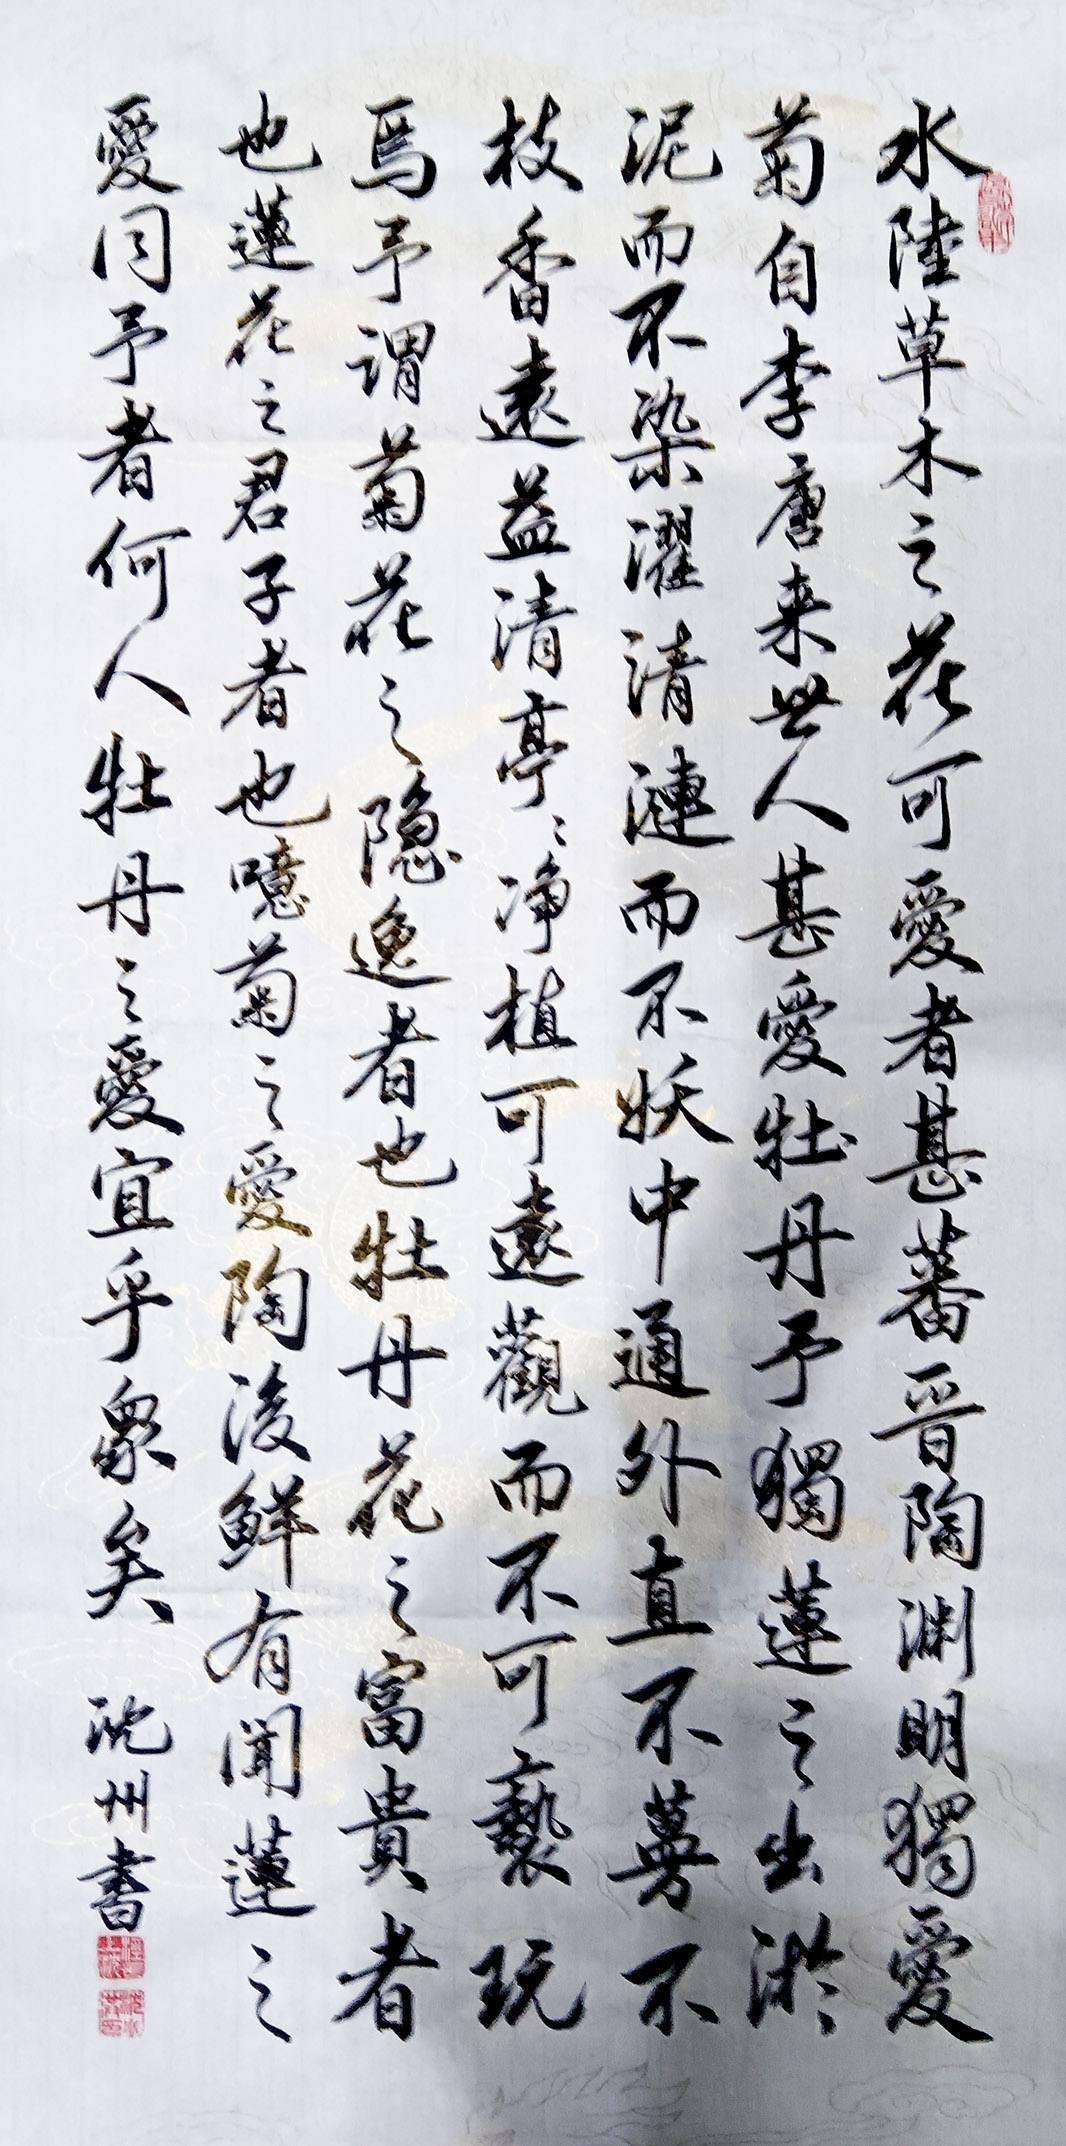 水陸草木之花可愛者甚蕃晉陶渊明獨愛
菊自李唐来世人甚愛牡丹予獨蓮之出淤
泥而不染濯清漣而不妖中通外直不蔓不
枝香遠益清亭〻净植可遠觀而不可褻玩
焉予谓菊花之隐逸者也牡丹花之富貴者
也蓮花之君子者也噫菊之愛陶後鮮有聞蓮之
愛同予者何人牡丹之愛宜乎衆矣 沈州書